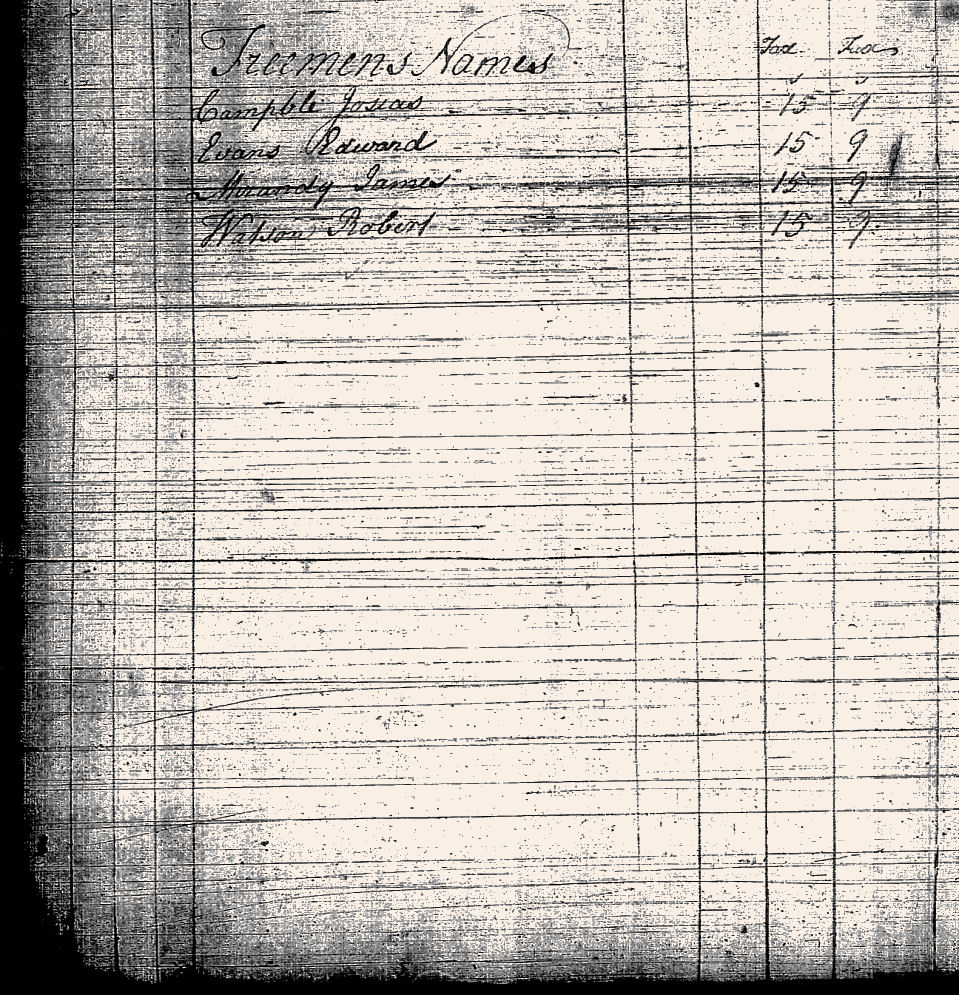 Freemens Names Tax Tax
s s
Campble Josias 15 9
Evans Edward 15 9
Mirandy James 15 9
Watson Robert 15 9